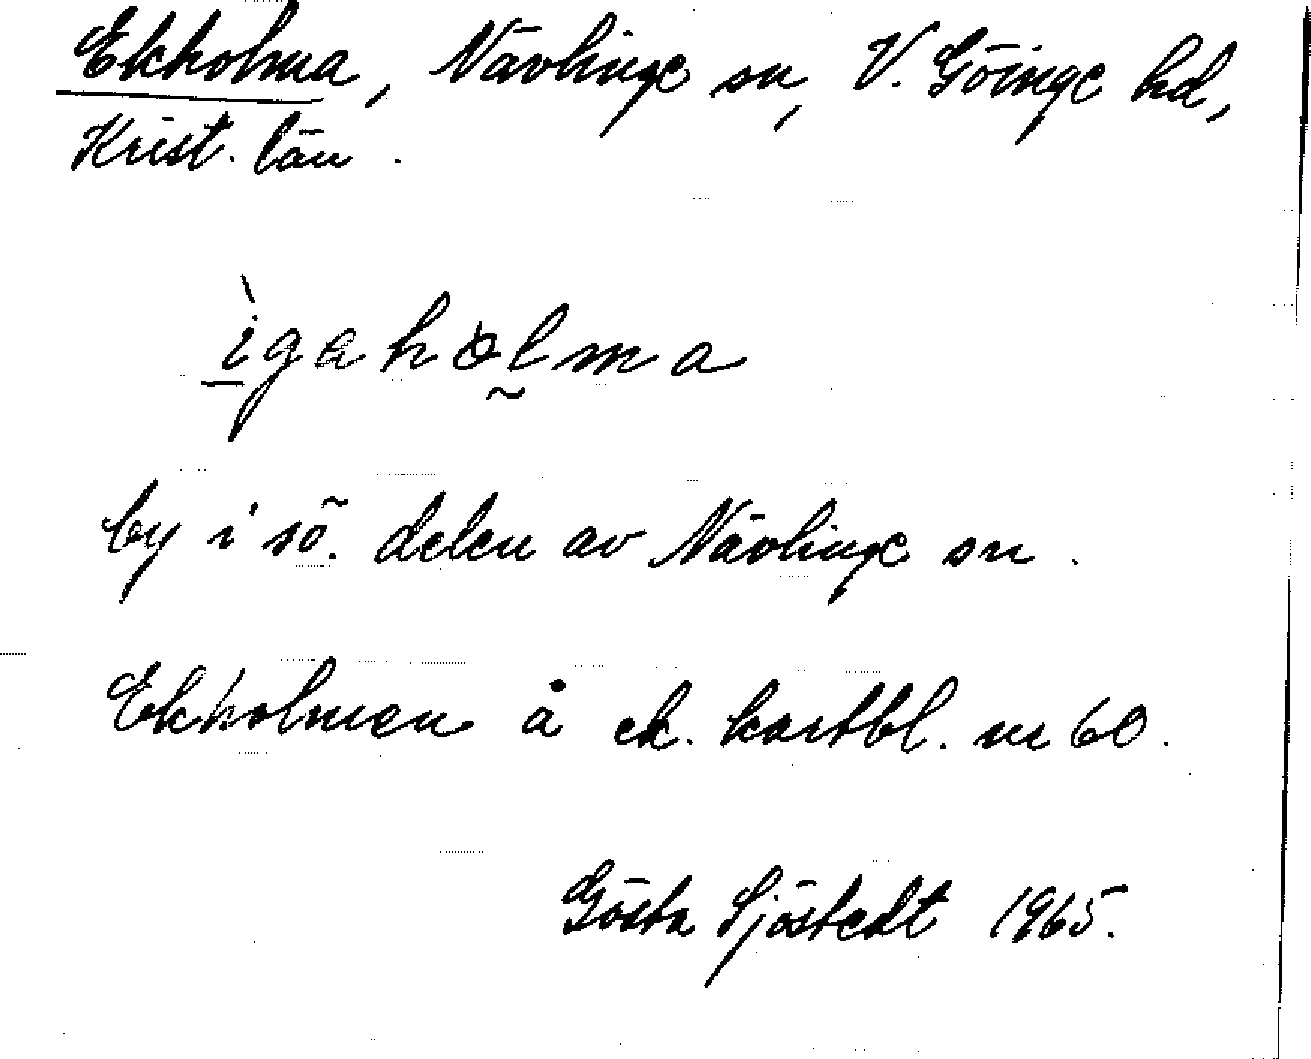 Ekholma, Nävlinge sn, V. Göinge hd,
Krist. län.
ìgahòlma
by i sö. delen av Nävlinge sn.
Ekholmen å ek. kartbl. nr 60.
Gösta Sjöstedt 1965.